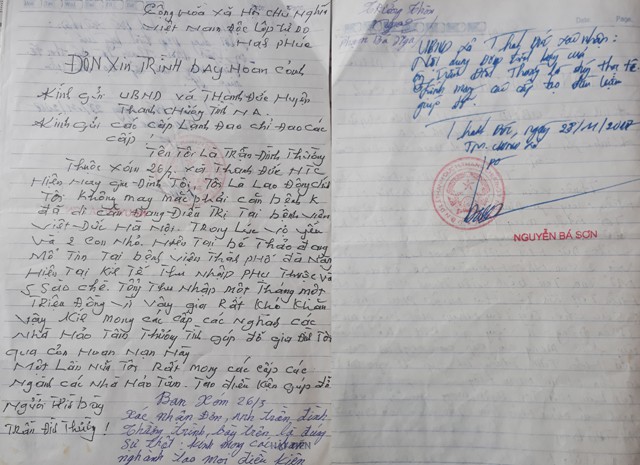 Cộng Hòa xã Hội Chủ Nghĩa
Việt Nam Độc Lập Tự Do
Hạnh Phúc
ĐƠN XIN TRÌNH bày Hoàn Cảnh
Kính Gửi UBND xã Thanh Đức Huyện
Thanh Chương Tỉnh N.A.
Kính Gửi các cấp Lãnh Đạo chỉ Đạo các
cấp.
Tên Tôi Là Trần Đình Thường
Thuộc xóm 26/3 xã Thanh Đức H.T.C
Hiện Nay gia Đình Tôi, Tôi Là Lao Động chính
Tôi không may mắc phải căn bệnh K
đã di căn Đang Điều Trị Tại bệnh viện
Việt Đức Hà Nội. Trong Lúc vợ yếu
và 2 con Nhỏ. Hiện Tại bé Thảo đang
Mổ Tim Tại bệnh viện Thành PHố đà Nẵng
Hiện Tại Kinh Tế Thu Nhập PHụ Thuộc và
5 Sào chè. Tổng Thu Nhập một Tháng một
Triệu Đồng vì vậy gia Rất Khó Khăn
vậy Kính mong các cấp các Nghành các
NHà Hảo Tâm Thương Tình Giúp đỡ gia Đình Tôi
qua cơn Hoạn Nạn Này
Một Lần Nữa Tôi Rất mong các cấp các
Ngành các Nhà Hảo Tâm. Tạo điều kiện giúp đỡ
Người Trình bày
Trần Đình Thường!
Ban xóm 26/3
Xác nhận Đơn, Anh Trần đình
Thường trình bày trên là đúng
Sự thật. Kính mong các
nghành tạo mọi điều kiện
UBND xã Thanh Đức xác nhận:
Nội dung trình bày của
ông Trần Đình Thường là đúng thực tế.
Kính mong các cấp tạo điều kiện
giúp đỡ.
Thanh Đức, ngày 28/11/2018
TM. UBND xã
NGUYỄN BÁ SƠN